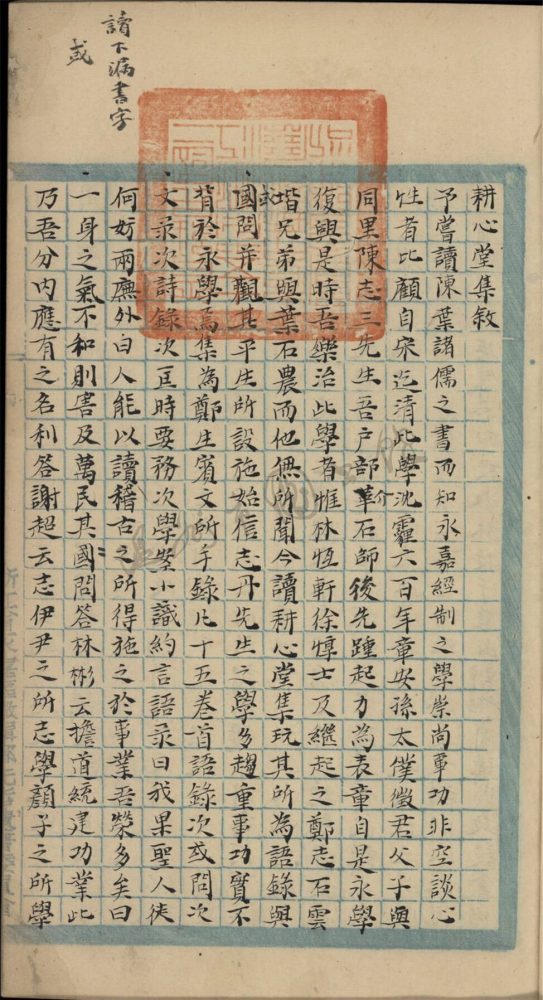 讀下漏書字
或
耕心堂集敘
予嘗讀陳葉諸儒之書而知永嘉經制之學崇尚事功非空談心
性者比顧自宋迄清此學沈霾六百年章安孫太僕徵君父子與
同里陳志三先生吾戶部介石師後先踵起力為表章自是永學
復興是時吾樂治此學者惟林恆軒徐惇士及繼起之鄭志石雲
堦兄弟與葉石農而他無所聞今讀耕心堂集玩其所為語錄與
國問并觀其平生所設施始信志丹先生之學多趨重事功實不
背於永學焉集為鄭生賓文所手錄凡十五卷首語錄次或問次
文录次詩錄次匡時要務次學塾小識約言語录曰我果聖人徒
何妨兩廡外白人能以讀稽古之所得施之於事業吾榮多矣曰
一身之氣不和則害及萬民其國問答林彬云擔道統建功業此
乃吾分內應有之名利答謝超云志伊尹之所志學顏子之所學